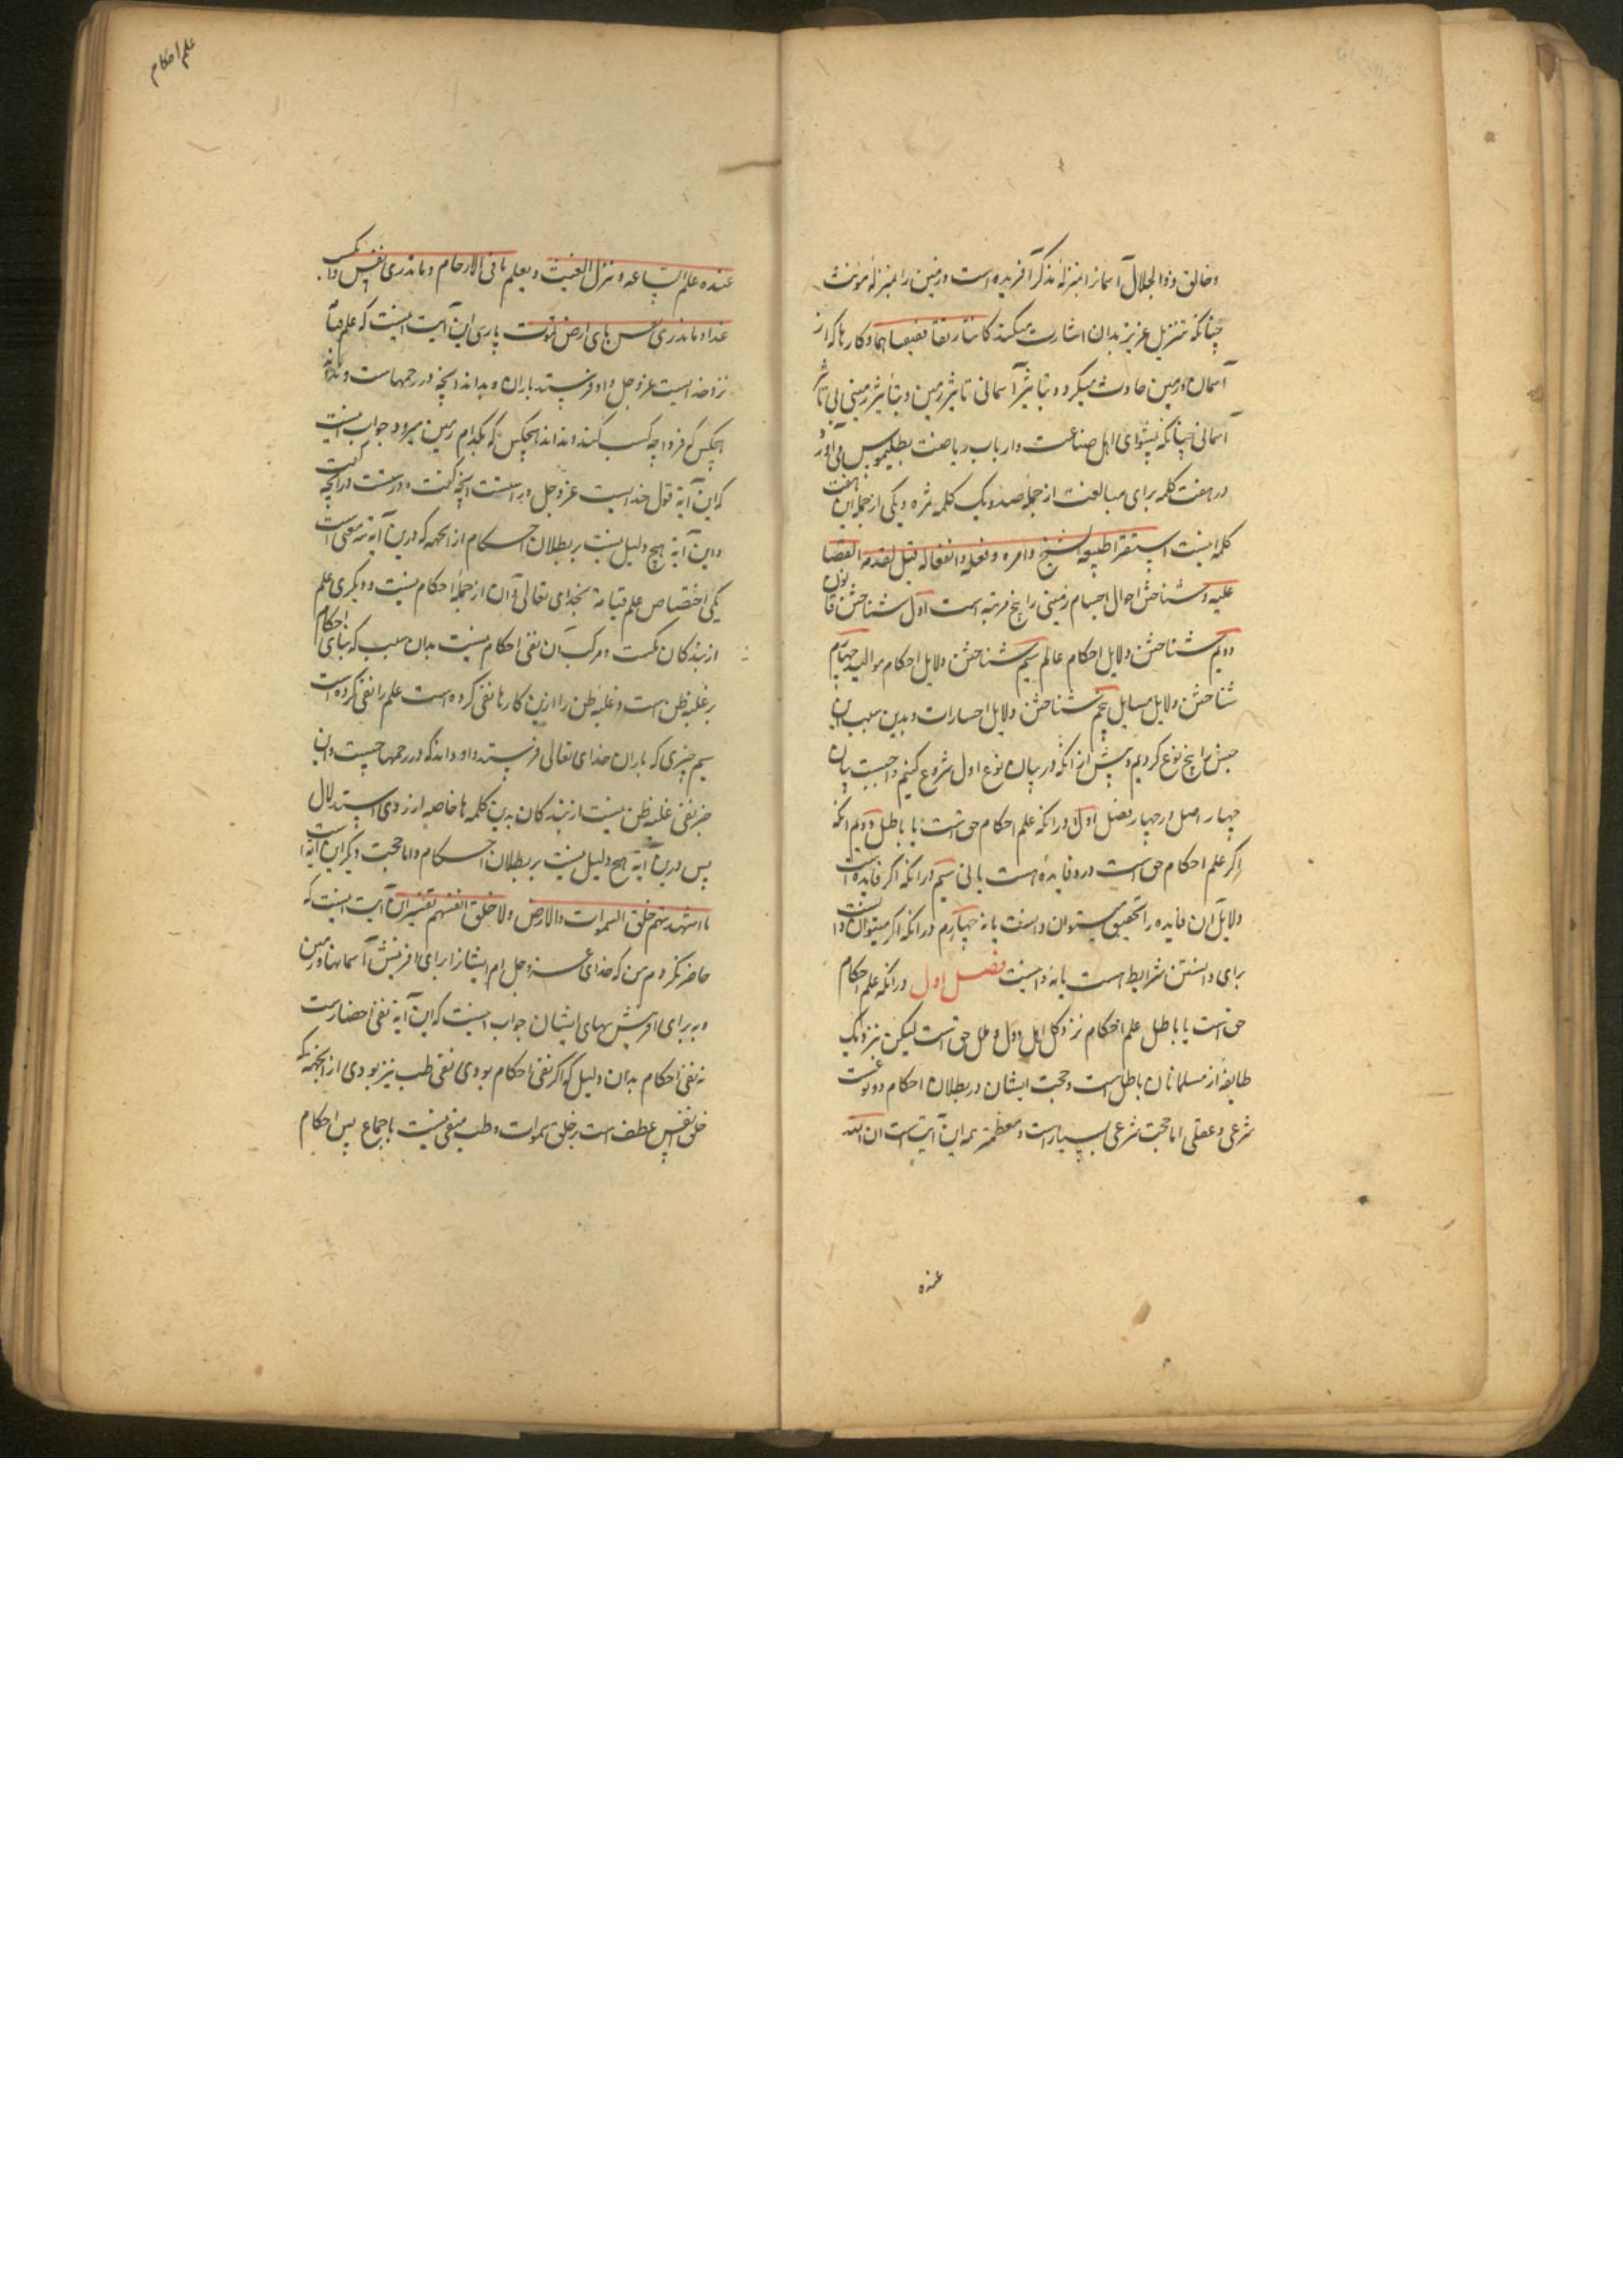 و خالق ذو الجلال آسمانرا بمنزلهٔ مذکر آفریده است و زمین را بمنزلهٔ مونث
چنانکه تنزیل عزیز بدان اشارت میکند کانتا رتقا ففتقناهما و کارها که از
آسمان و زمین حادث میگردد بتاثیر آسمانی تا بیژر زمین و بتاثیر زمینی بی تاثیر
آسمانی چنانکه پیشوای اهل صناعت و ارباب ریاضت بطلیموس می آورد
در هفت کلمه برای مبالغت از جمله صد و یک کلمه ثمره و یکی از جمله این هفت
کلمه اینست
علیه و شناختن احوال اجسام زمینی را پنج مرتبه است اول شناختن قانون
دویم شناختن دلایل احکام عالم سیم شناختن دلایل احکام موالید چهارم
شناختن دلایل مسایل پنجم شناختن دلایل اختیارات و بدین سبب این
جنس را پنج نوع کردیم و پیش از آنکه در بیان نوع اول شروع کنیم واجبست بیان
چهار اصل در چهار فصل اول در آنکه علم احکام حق است یا باطل دویم آنکه
اگر علم احکام حق است درو فایدهٔ هست یا نی سیم در آنکه اگر فایده است
دلایل آن فایده را بتحقیق میتوان دانست یا نه چهارم در آنکه اگر میتوان دانست
برای دانستن شرایط است یا نه و اینست فصل اول در آنکه علم احکام
حق است یا باطل علم احکام نزد کل اهل دول و ملل حق است لیکن نزدیک
طایفه از مسلمانان باطل است و حجت ایشان در بطلان احکام دو نوعست
شرعی و عقلی اما حجت شرعی بسیار است و معظم ترین همه این آیت است ان الله
عنده
علم احکام
عنده علم الساعه و ینزل الغیث و یعلم ما فی الارحام و ما تدری نفس ماذا تکسب
غدا و ما تدری نفس بای ارض تموت پارسی این آیت اینست که علم قیامت
نزد خدایست عز و جل و او فرستد باران و بداند آنچه در رحمهاست و نداند
هیچکس که فردا چه کسب کند و نداند هیچکس که بکدام زمین میرد و جواب اینست
که این آیة قول خدایست عز و جل و راستست آنچه گفت و درست در آنچه گفت
و این آیة هیچ دلیل نیست بر بطلان احکام از انجهه که درین آیة سه معنی است
یکی اختصاص علم قیامة بخدای تعالی و آن از جملهٔ احکام نیست و دیگری علم
از بندگان بکسب و مرگ آن نفی احکام نیست بدان سبب که بنای احکام
بر غلبه ظن است و غلبه ظن را ازین کارها نفی نکرده است علم را نفی کرده است
سیم چیزی که باران خدای تعالی فرستد و او داند که در رحمها چیست و این
خبر نفی غلبه ظن نیست از بندگان بدین کلمه ها خاصه از روی استدلال
پس درین آیة هیچ دلیل نیست بر بطلان احکام و اما حجت دیگر این آیة است
ما اشهدتهم خلق السموات والارض ولا خلق انفسهم تفسیر این آیت اینست که
حاضر نکردم من که خدای عز و جل ام ایشانرا برای آفرینش آسمانها و زمین
و نه برای آفرینش نفسهای ایشان جواب اینست که این آیة نفی احضارست
نه نفی احکام بدان دلیل که اگر نفی احکام بودی نفی طب نیز بودی از انجهه که
خلق انفس عطف است بر خلق سموات و طب منفی نیست باجماع پس احکام